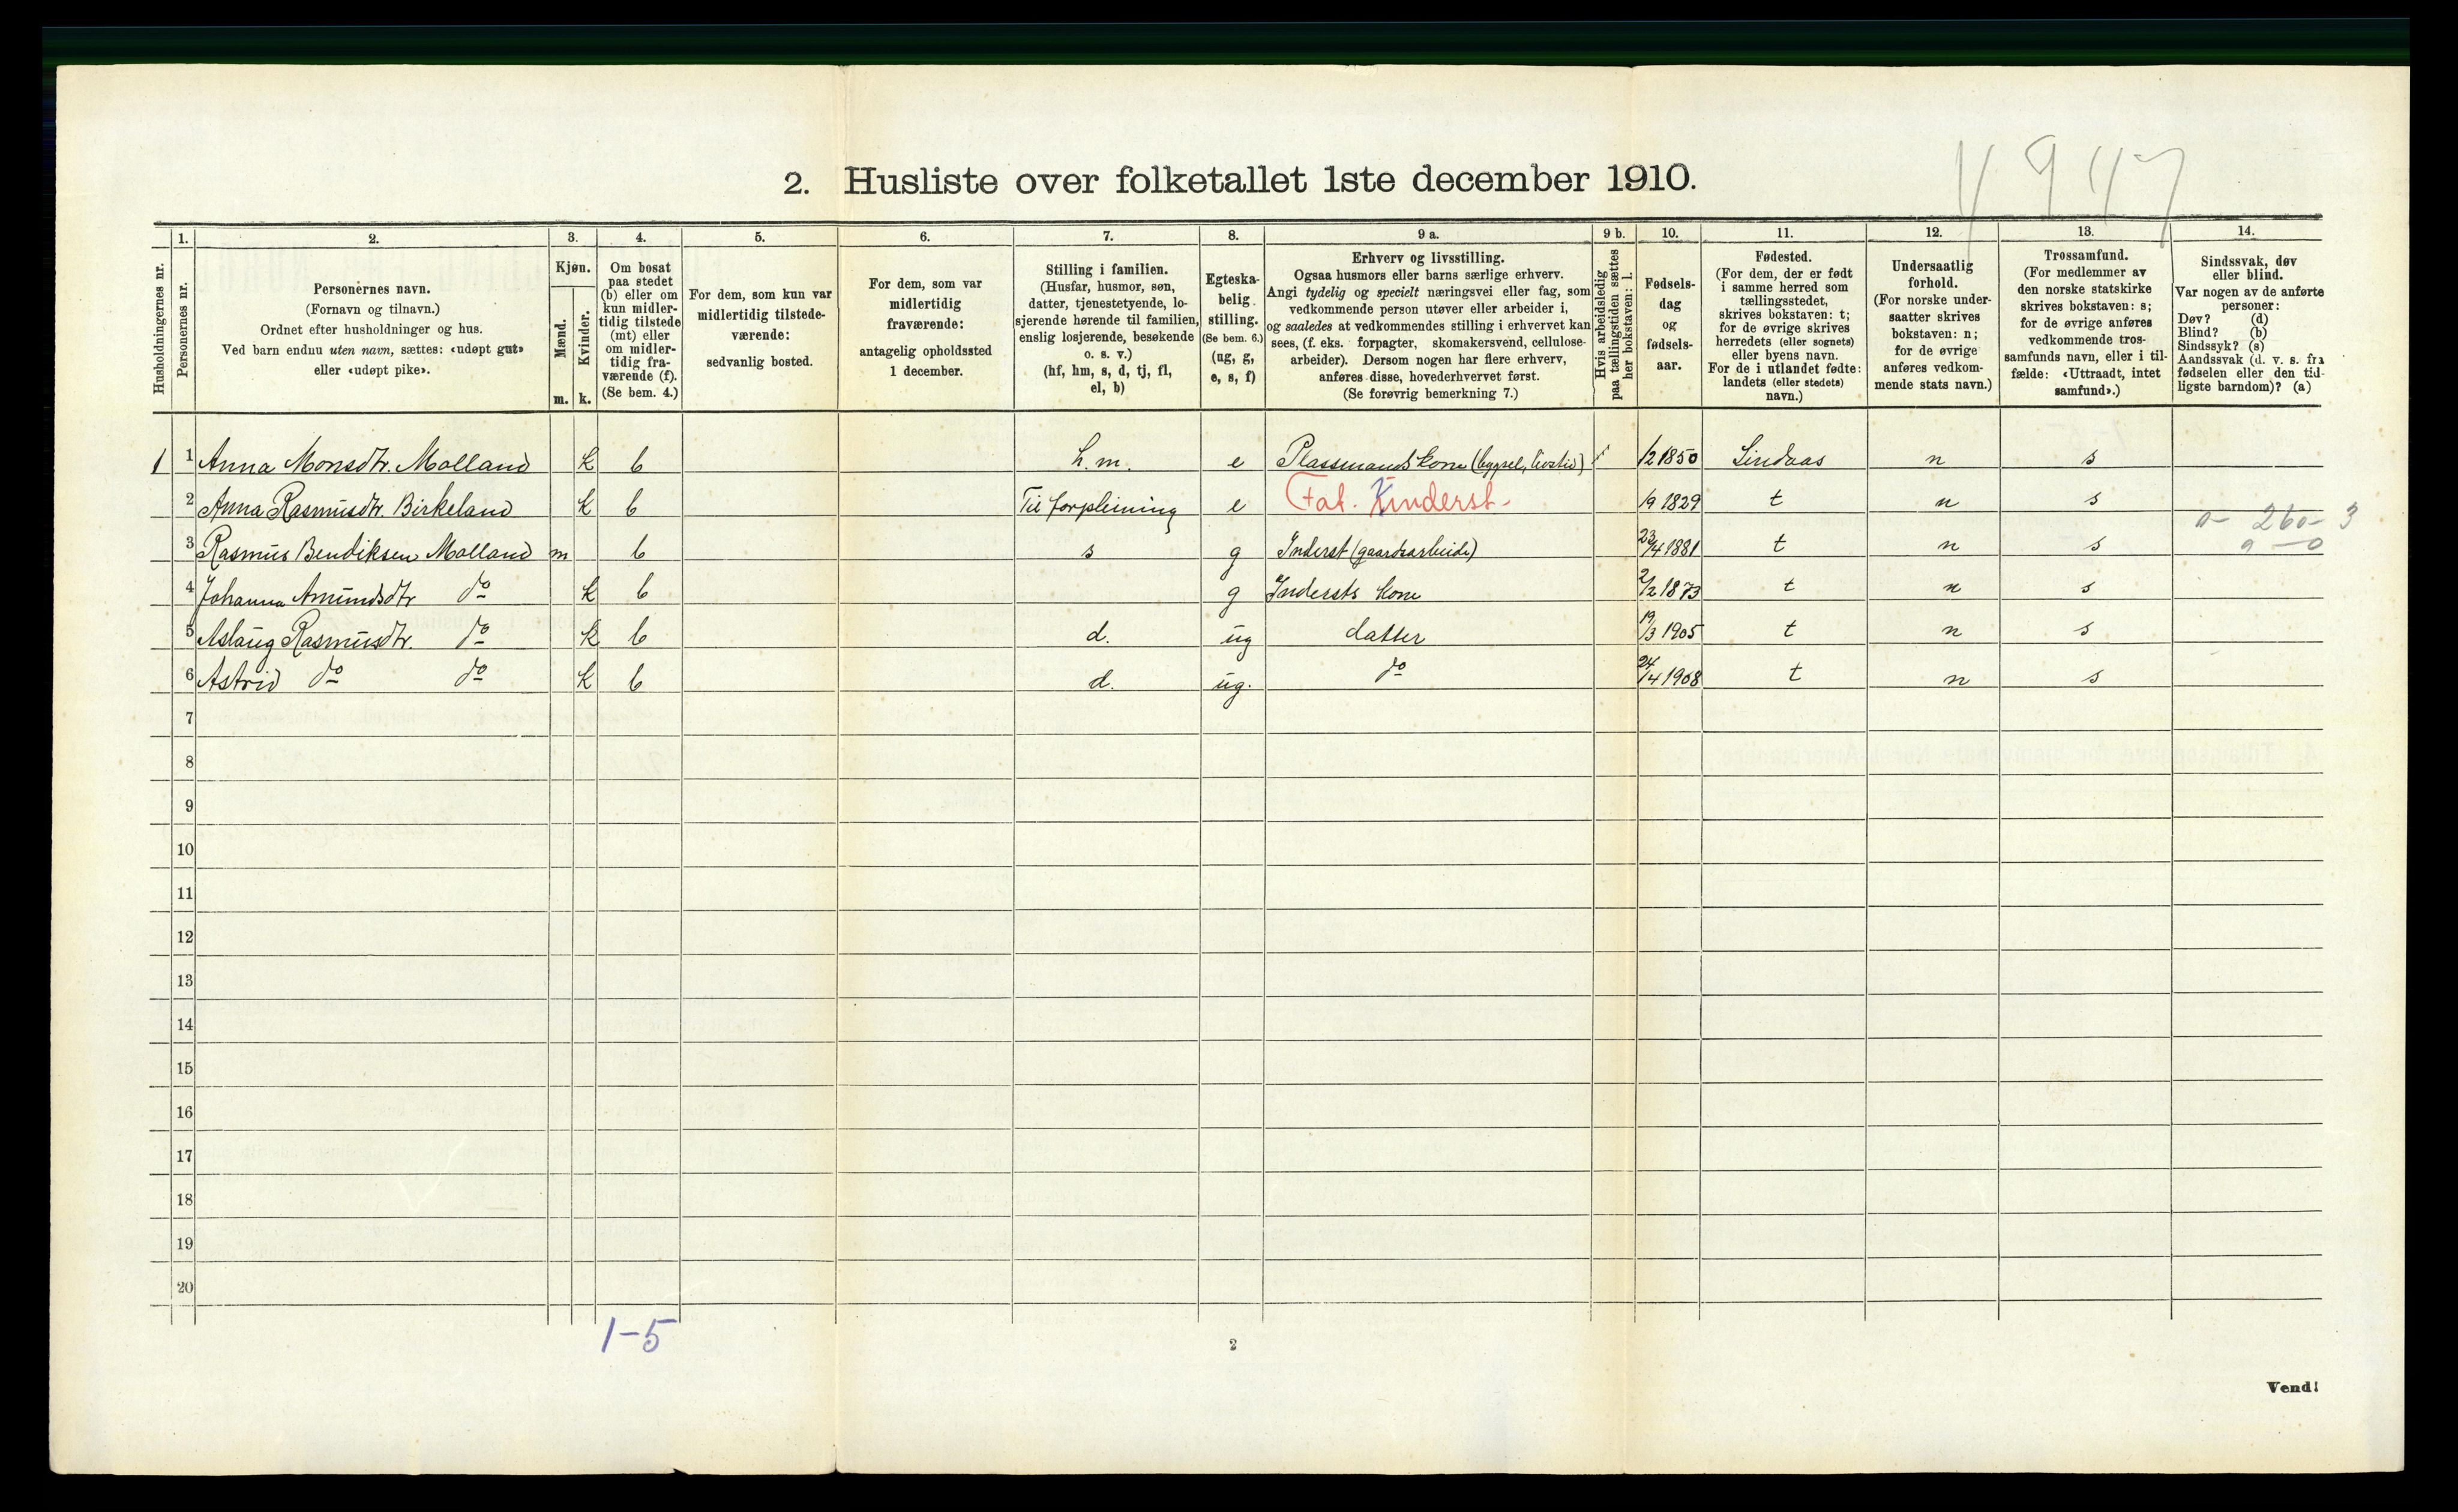 2. Husliste over folketallet 1ste december 1910.
Husholdningernes nr.
1.
Personernes nr.
2.
Personernes navn.
(Fornavn og tilnavn.)
Ordnet efter husholdninger og hus.
Ved barn endnu uten navn, sættes: «udøpt gut»
eller «udøpt pike».
3.
Kjøn.
Mænd.
Kvinder.
m. k.
4.
Om bosat
paa stedet
(b) eller om
kun midler-
tidig tilstede
(mt) eller
om midler-
tidig fra-
værende (f).
(Se bem. 4.)
5.
For dem, som kun var
midlertidig tilstede-
værende:
sedvanlig bosted.
6.
For dem, som var
midlertidig
fraværende:
antagelig opholdssted
1 december.
7.
Stilling i familien.
(Husfar, husmor, søn,
datter, tjenestetyende, lo-
sjerende hørende til familien,
enslig losjerende, besøkende
o. s. v.)
(hf, hm, s, d, tj, fl,
el, b)
8.
Egteska-
belig
stilling.
(Se bem. 6.)
(ug, g,
e, s, f)
9 a.
Erhverv og livsstilling.
Ogsaa husmors eller barns særlige erhverv.
Angi tydelig og specielt næringsvei eller fag, som
vedkommende person utøver eller arbeider i,
og saaledes at vedkommendes stilling i erhvervet kan
sees, (f. eks. forpagter, skomakersvend, cellulose-
arbeider). Dersom nogen har flere erhverv,
anføres disse, hovederhvervet først.
(Se forøvrig bemerkning 7.)
9 b.
Hvis arbeidsledig
paa tællingstiden sættes
her bokstaven: l.
10.
Fødsels-
dag
og
fødsels-
aar.
11.
Fødested.
(For dem, der er født
i samme herred som
tællingsstedet,
skrives bokstaven: t;
for de øvrige skrives
herredets (eller sognets)
eller byens navn.
For de i utlandet fødte:
landets (eller stedets)
navn.)
12.
Undersaatlig
forhold.
(For norske under-
saatter skrives
bokstaven: n;
for de øvrige
anføres vedkom-
mende stats navn.)
13.
Trossamfund.
(For medlemmer av
den norske statskirke
skrives bokstaven: s;
for de øvrige anføres
vedkommende tros-
samfunds navn, eller i til-
fælde: «Uttraadt, intet
samfund».)
14.
Sindssvak, døv
eller blind.
Var nogen av de anførte
personer:
Døv? (d)
Blind? (b)
Sindssyk? (s)
Aandssvak (d. v. s. fra
fødselen eller den tid-
ligste barndom)? (a)
1 1 Anna Monsdtr. Molland k b h.m. e Plassmands kone 1/2 1850 Lindaas n s
2 Anna Rasmusdtr. Birkeland k b Til forpleining e Fat. Kinderst. 1/9 1829 t n s
0- 260-3
3 Rasmus Bendiksen Molland m b s g Inderst (gaardsarbeide) 23/4 1881 t n s
0 - 0
4 Johanna Amundsdtr do k b g Indersts kone 2/2 1873 t n s
5 Aslaug Rasmusdtr. do k b d. ug datter 19/3 1905 t n s
6 Astrid do do k b d. ug. do 24/4 1908 t n s
7
8
9
10
11
12
13
14
15
16
17
18
19
20
1-5
2
Vend!